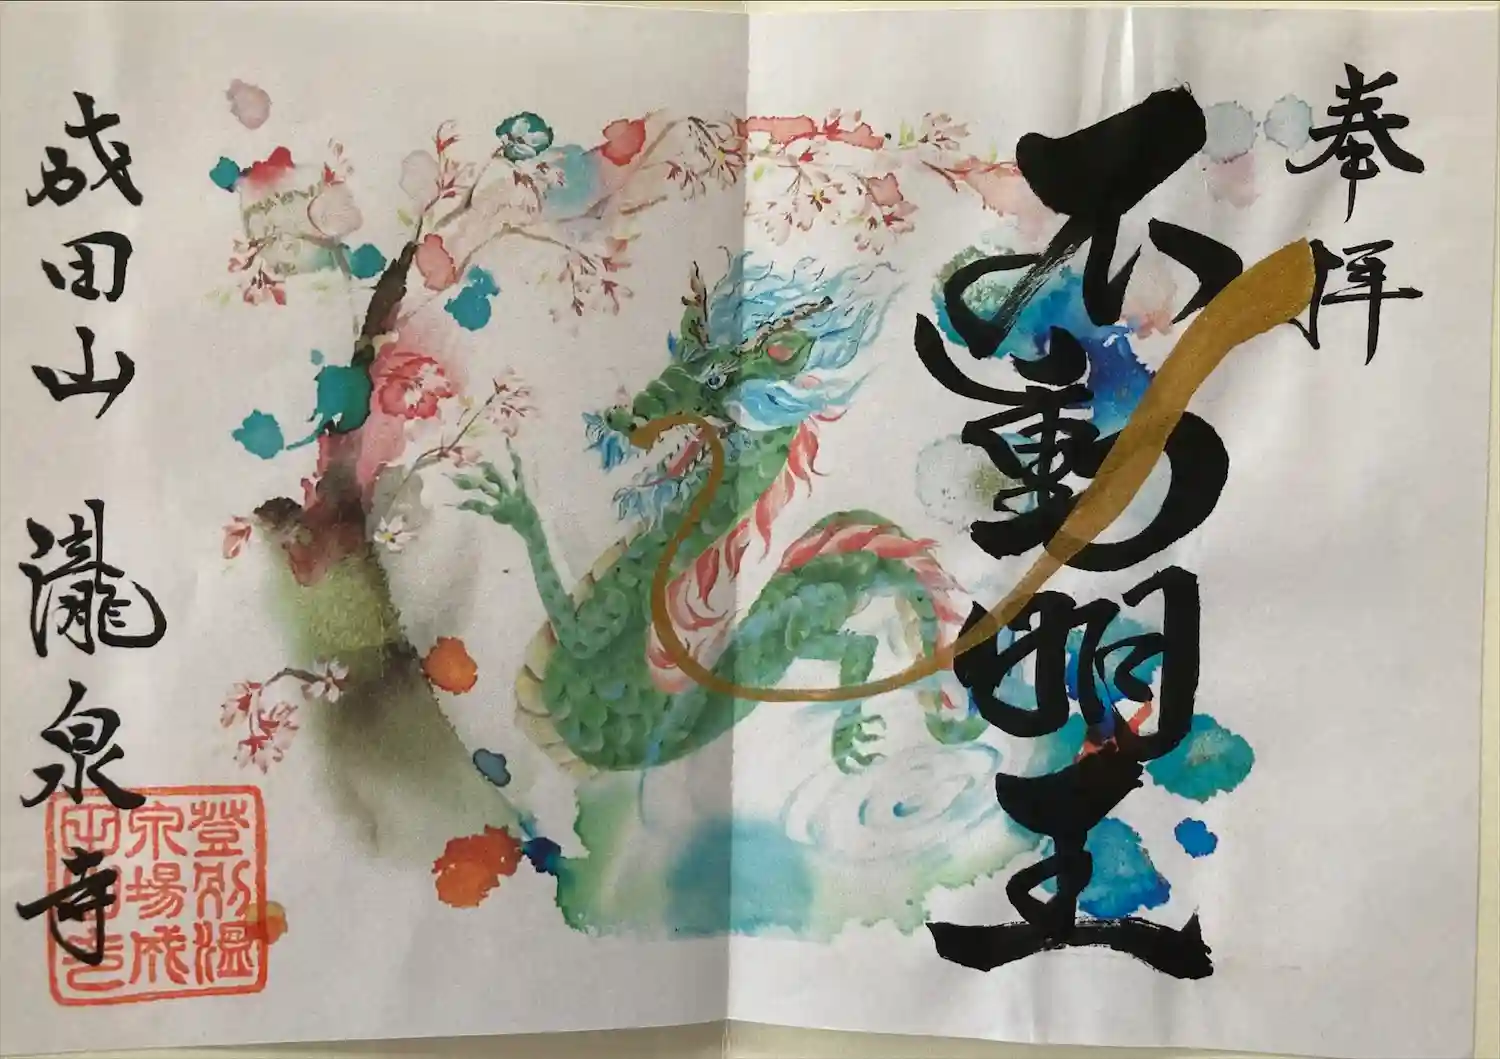 奉拝
不動明王
成田山 瀧泉寺
登別温
泉場成